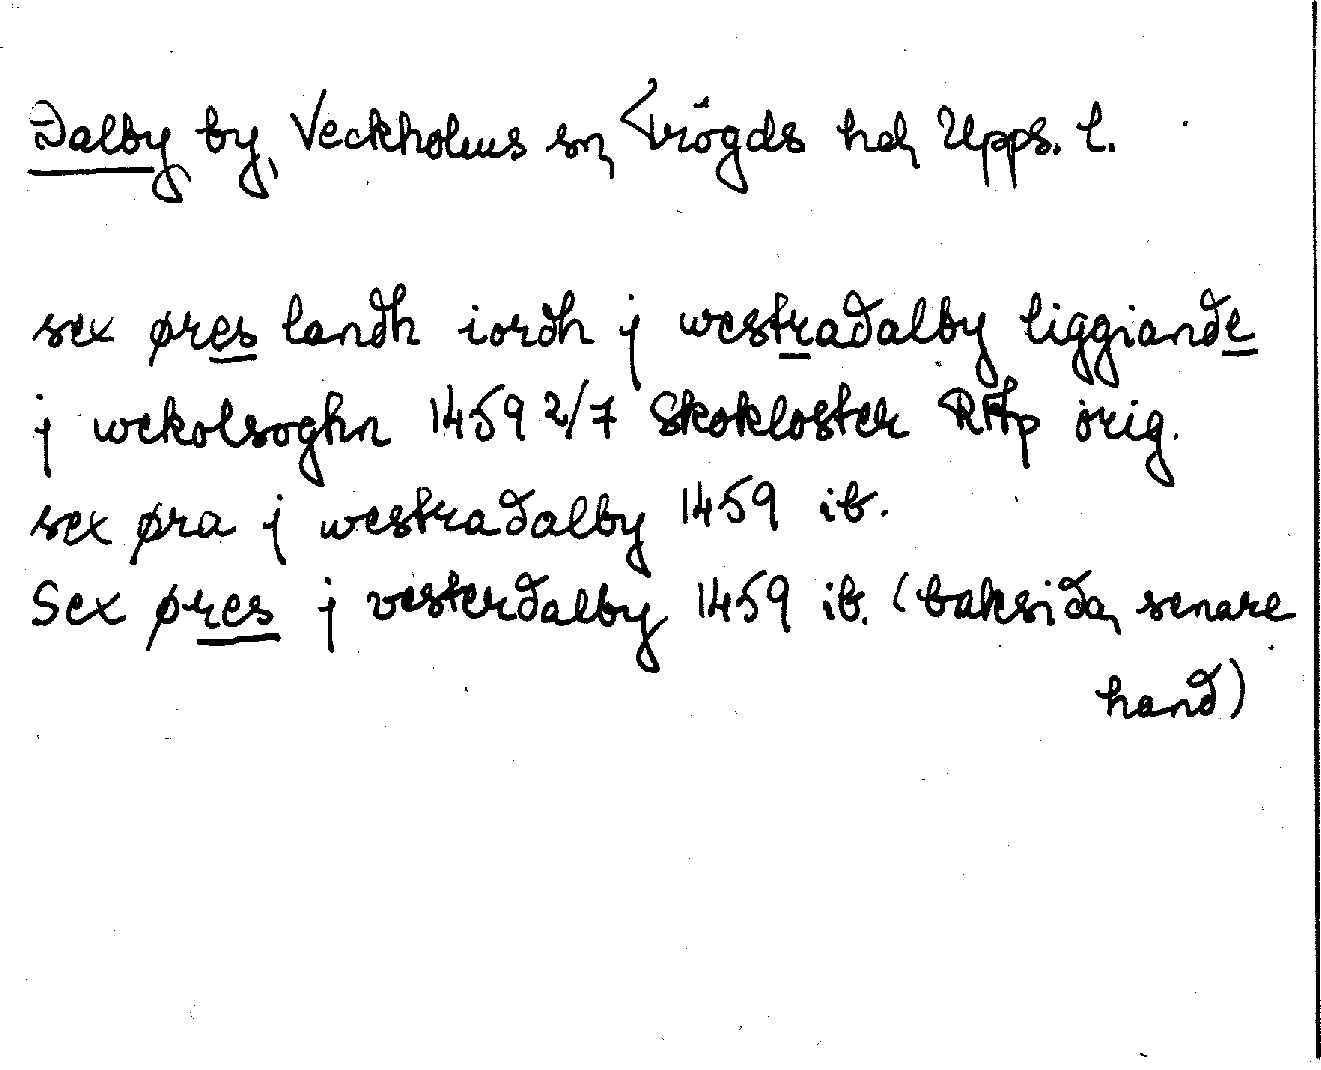 Dalby by, Veckholms sn, Trögds hd, Upps. l.
sex øres landh iordh j westradalby liggiande
j wekolsoghn 1459 2/7 Skokloster RAp orig.
sex øra j westradalby 1459 ib.
Sex øres j vesterdalby 1459 ib. (baksida, senare
hand)